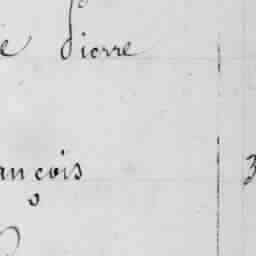 e Pierre
ançois 3